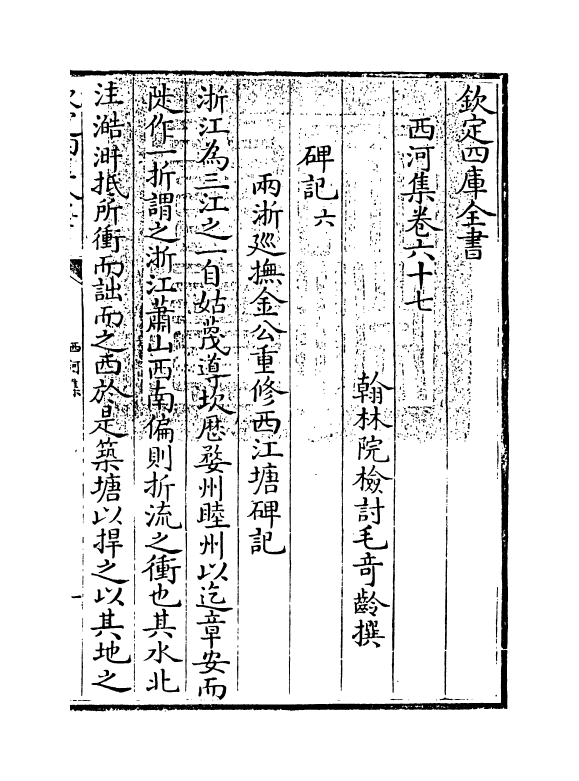 欽定四庫全書
西河集卷六十七
翰林院檢討毛奇齡撰
碑記六
兩浙巡撫金公重修西江塘碑記
浙江為三江之一自姑蔑導坎歴婺州睦州以迄章安而
陡作一折謂之浙江蕭山西南偏則折流之衝也其水北
注澔溿抵所衝而詘而之西於是築塘以捍之以其地之
西河集
一